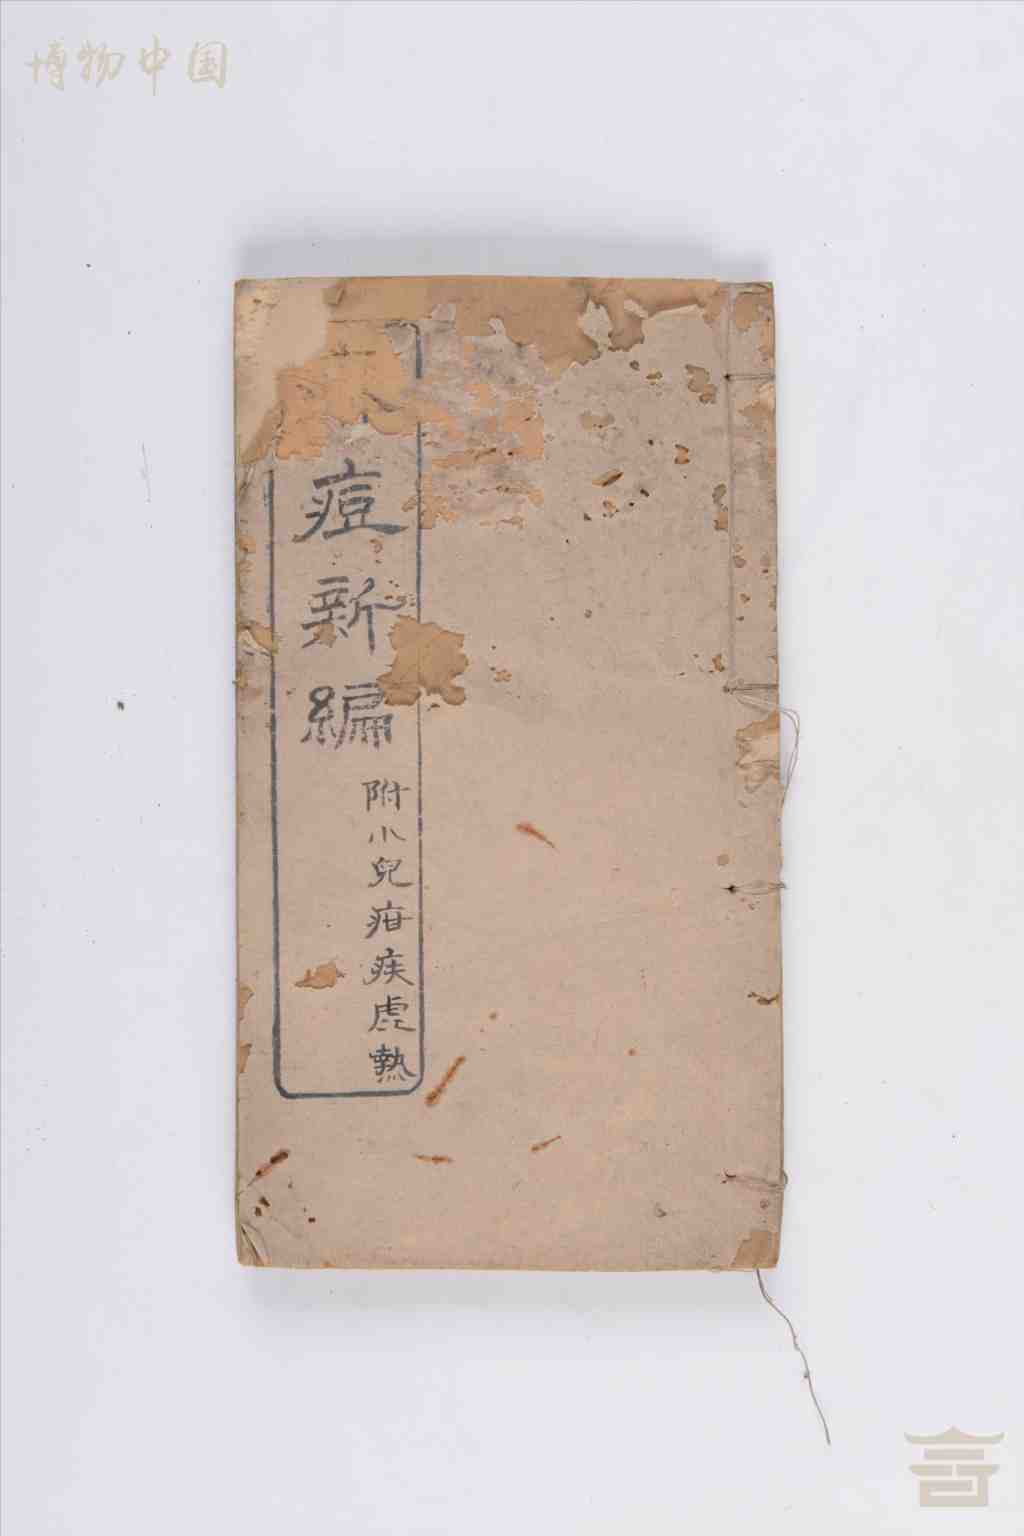 博物中国
痘新編
附小兒疳疾虚熱